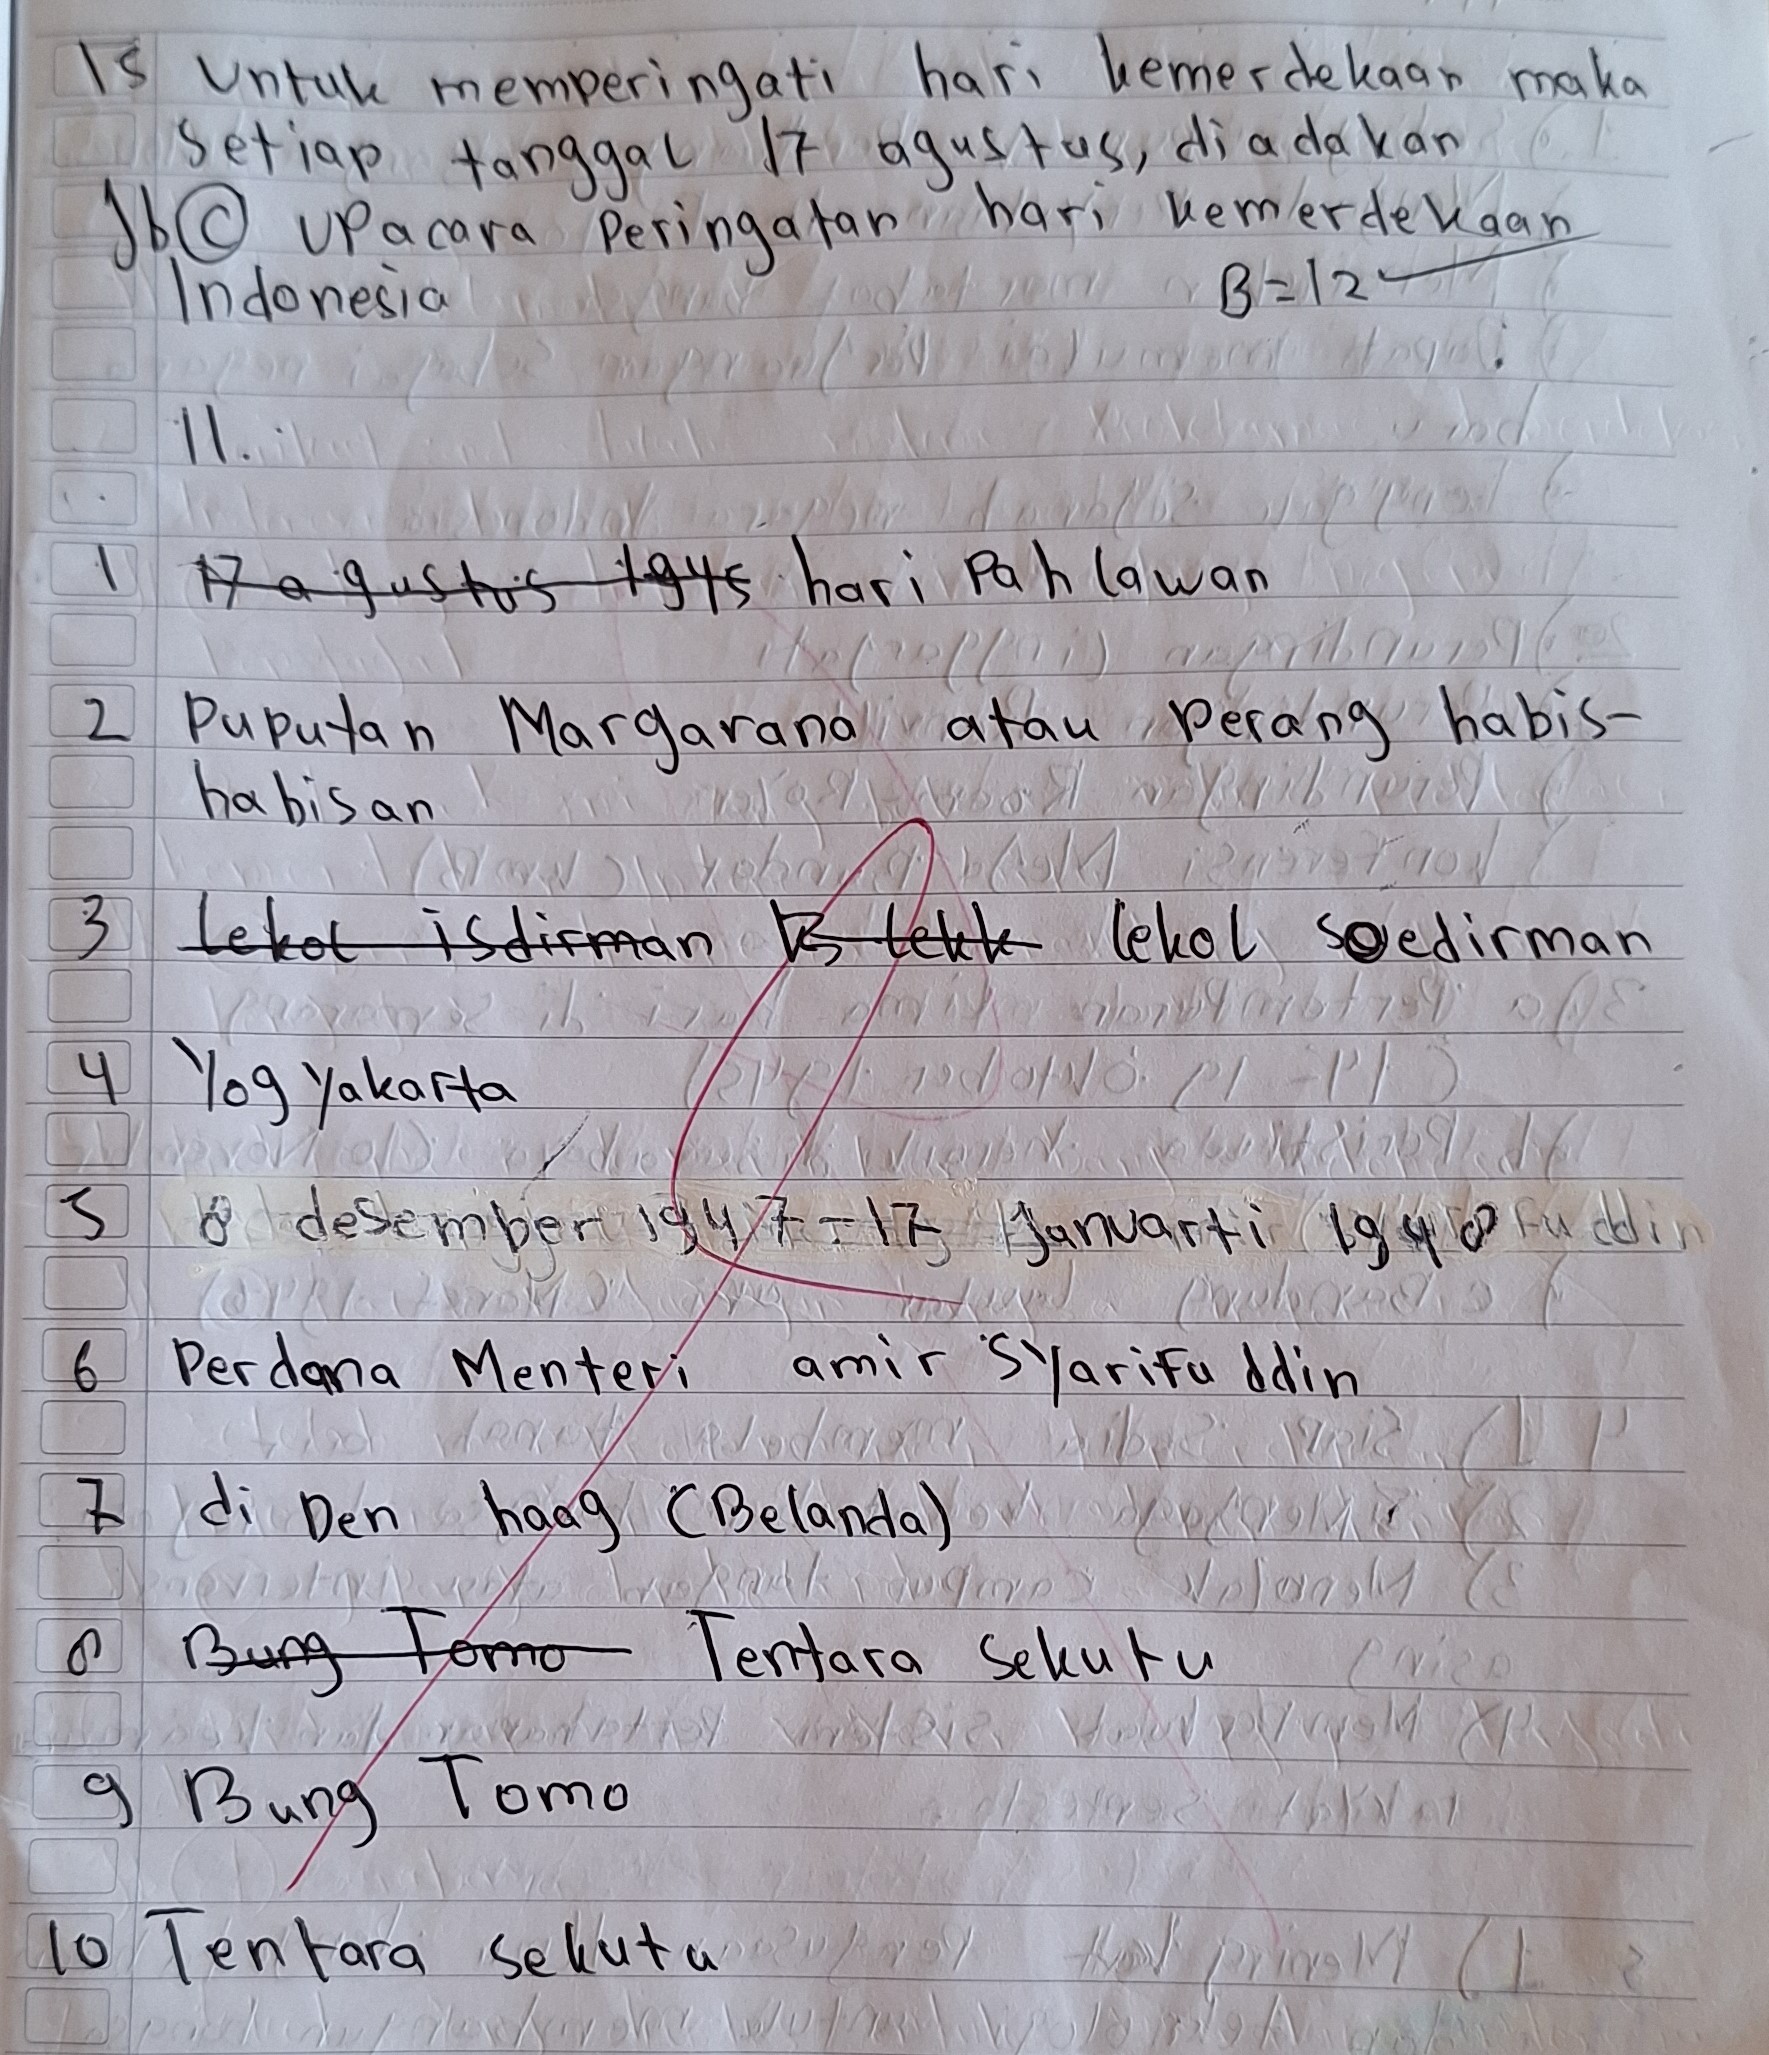 15 Untuk memperingati hari kemerdekaan maka
setiap tanggal 17 agustus, diadakan
Jb (C) upacara Peringatan hari kemerdekaan
Indonesia
B=12
II.
1 17 agustus 1945 hari Pahlawan
2 Puputan Margarana atau perang habis-
habisan
3 Lekol isdirman lekol soedirman
4 Yogyakarta
5 8 desember 1947-17 Januarti 1948 fuddin
6 Perdana Menteri amir Syarifuddin
7 di Den haag (Belanda)
8 Bung Tomo Tentara sekutu
9 Bung Tomo
10 Tentara sekutu